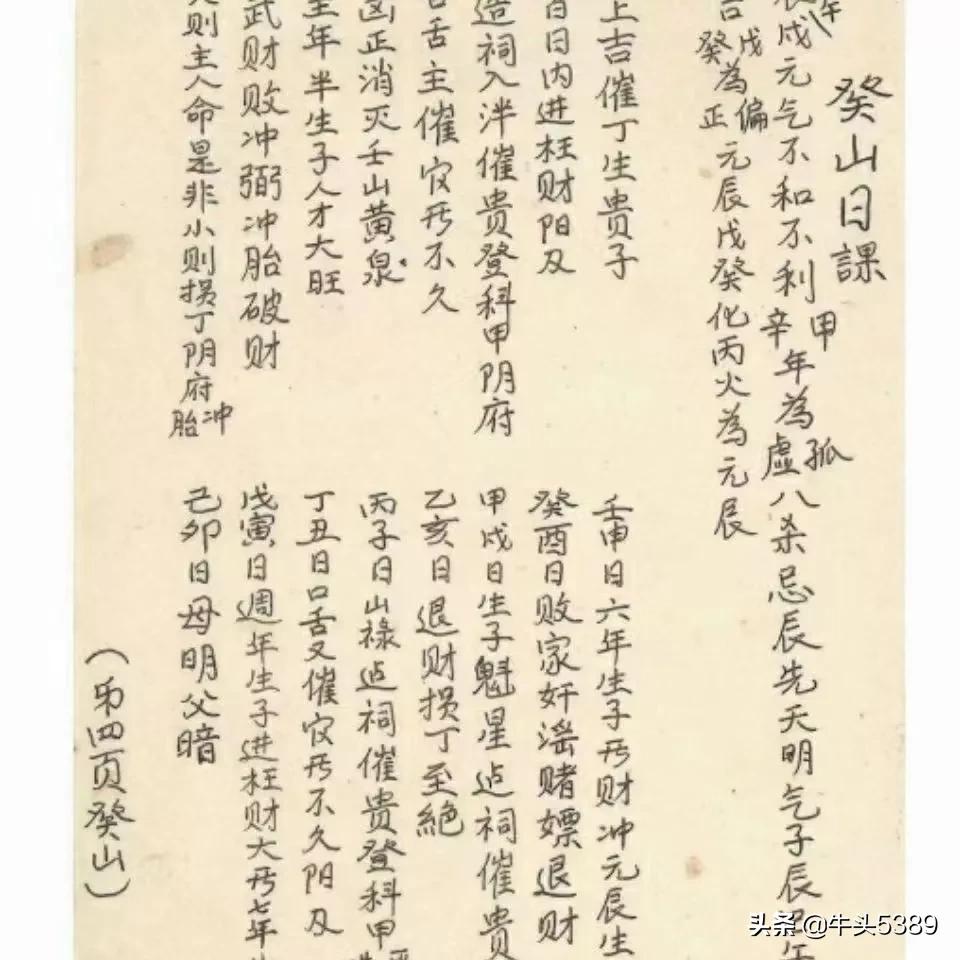 癸山日課
辰戌元气不和不利甲辛年為孤虚八杀忌辰先天明气子辰
戊癸為偏正元辰戊癸化丙火為元辰
上吉催丁生贵子
日内进莊财阳及
造祠入泮催贵登科甲阴府
舌主催官禄不久
凶正消灭壬山黄泉
年半生子人才大旺
武财败冲弼冲胎破财
则主人命是非小则損丁阴府冲胎
壬申日六年生子禄财冲元辰生
癸酉日败家奸滛赌嫖退财
甲戌日生子魁星造祠催贵
乙亥日退财损丁至絕
丙子日山禄造祠催贵登科甲
丁丑日口舌又催官禄不久阴及
戊寅日週年生子进莊财大禄七年
己卯日母明父暗
（第四页癸山）
头条@牛头5389